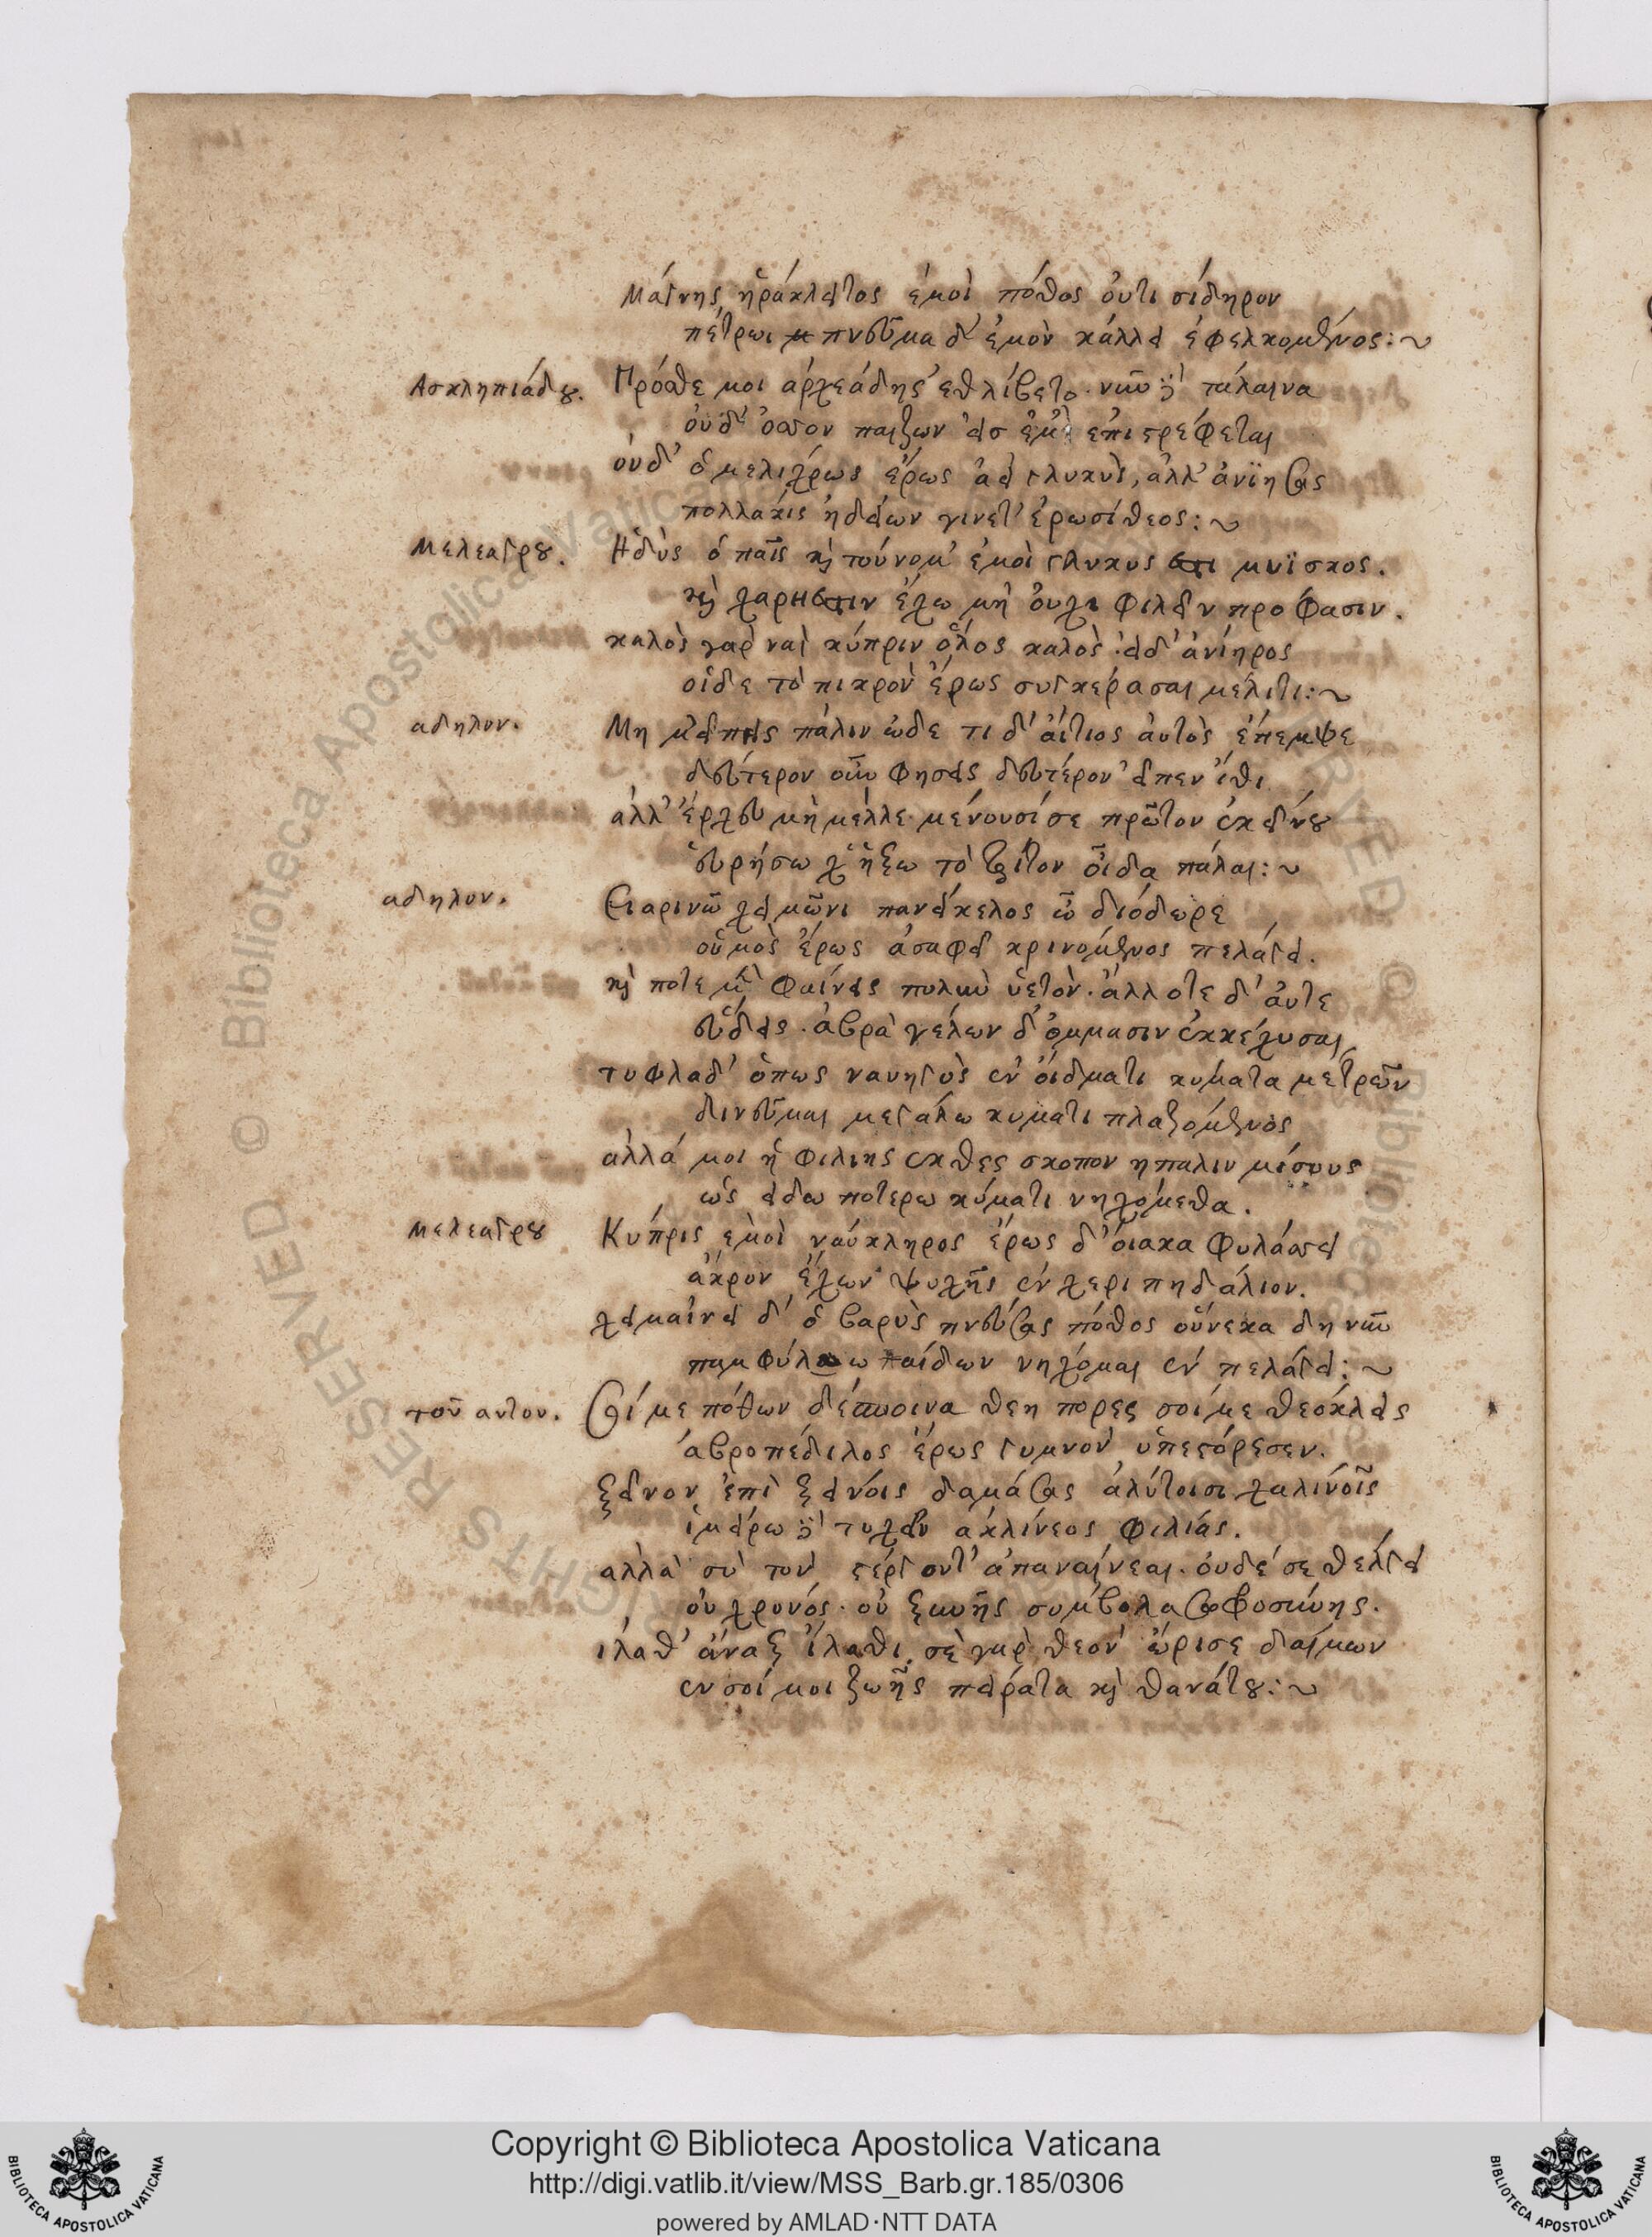 Μάγνης ἡράκλειτος ἐμοὶ πόθος οὔτι σίδηρον
πέτρωι πνεῦμα δ' ἐμὸν κάλλει ἐφελκομένος:~
Ασκληπιάδου. Πρόσθε μοι ἀρχεάδης ἐθλίβετο. νῦν δὲ τάλαινα
οὐδ' ὅσσον παίζων εἰσ ἐμὲ ἐπιστρέφεται
οὐδ' ὁ μελιχρὼς ἔρως ἀεὶ γλυκὺς, ἀλλ' ἀνιήσας
πολλάκις ἡδείων γινετ' ἐρωσί θεος:~
Μελεάγρου. Ηδὺς ὁ παῖς καὶ τούνομ' ἐμοὶ γλυκυς εστι μυΐσκος.
καὶ χαρηστιν ἔχω μὴ οὐχι φιλεῖν προφασιν.
καλὸς γαρ ναὶ κύπριν ὅλος καλὸς. εἰ δ' ἀνιηρος
οἶδε τὸ πικρὸν ἔρως συγκεράσαι μέλιτι:~
αδηλον. Μη μ' εἴπηις πάλιν ὧδε τι δ' αἴτιος αὐτὸς ἔπεμψε
δεύτερον οὖν φησεις δευτέρον εἶπεν ἴθι
ἀλλ' ἔρχευ μὴ μέλλε. μένουσί σε πρῶτον ἐκείνου
εὑρήσω χ' ἥξω τὸ τρίτον οἶδα πάλαι:~
αδηλον. Ειαρινῶ χειμῶνι πανείκελος ὦ διόδωρε
οὑμὸς ἔρως ἀσαφεῖ κρινομένος πελάγει.
καὶ ποτε μὲν φαίνεις πολὺν ὑετὸν. ἄλλοτε δ' αὖτε
εὔδιος. ἁβρὰ γελων δ' ὄμμασιν ἐκκέχυσαι
τυφλὰ δ' ὅπως ναυηγὸς ἐν οἴδματι κύματα μετρῶν
δινεῦμαι μεγαλω κυματι πλαζομένος
αλλά μοι ἢ φιλιης εκθες σκοπον η παλιν μίσους
ὡς ειδω ποτερω κύματι νηχόμεθα.
Μελεαγρου Κύπρις ἐμοὶ ναύκληρος ἔρως δ' οἴακα φυλάσσει
ἄκρον ἔχων ψυχῆς ἐν χερι πηδάλιον.
χειμαίνει δ' ὁ βαρὺς πνεύσας πόθος οὕνεκα δη νῦν
παμφύλω παίδων νηχομαι ἐν πελάγει:~
τοῦ αυτου. Οἵ με πόθων δέσποινα θεη πορες σοί με θεόκλεις
ἁβροπέδιλος ἔρως γυμνὸν ὑπεστόρεσεν.
ξεῖνον ἐπὶ ξείνοις δαμάσας ἀλύτοισι χαλινοῖς
ἱμείρω δὲ τυχεῖν ἀκλινεος φιλίας.
αλλὰ σὺ τον στέργοντ' ἀπαναίνεαι. οὐδέ σε θέλγει
οὐ χρονός. οὐ ξυνῆς συμβολα σωφροσύνης.
ιλαθ' ἄναξ ἵλαθι. σὲ γὰρ θεὸν ὥρισε δαίμων
εν σοί μοι ζωῆς πείρατα καὶ θανάτου:~
Copyright © Biblioteca Apostolica Vaticana
http://digi.vatlib.it/view/MSS_Barb.gr.185/0306
powered by AMLAD·NTT DATA